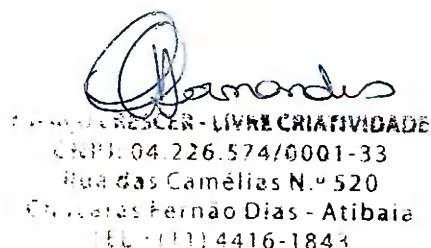 Fernandes
CRESCER - LIVRE CRIATIVIDADE
CNPJ: 04.226.574/0001-33
Rua das Camélias N.º 520
Chácaras Fernão Dias - Atibaia
TEL.: (11) 4416-1843